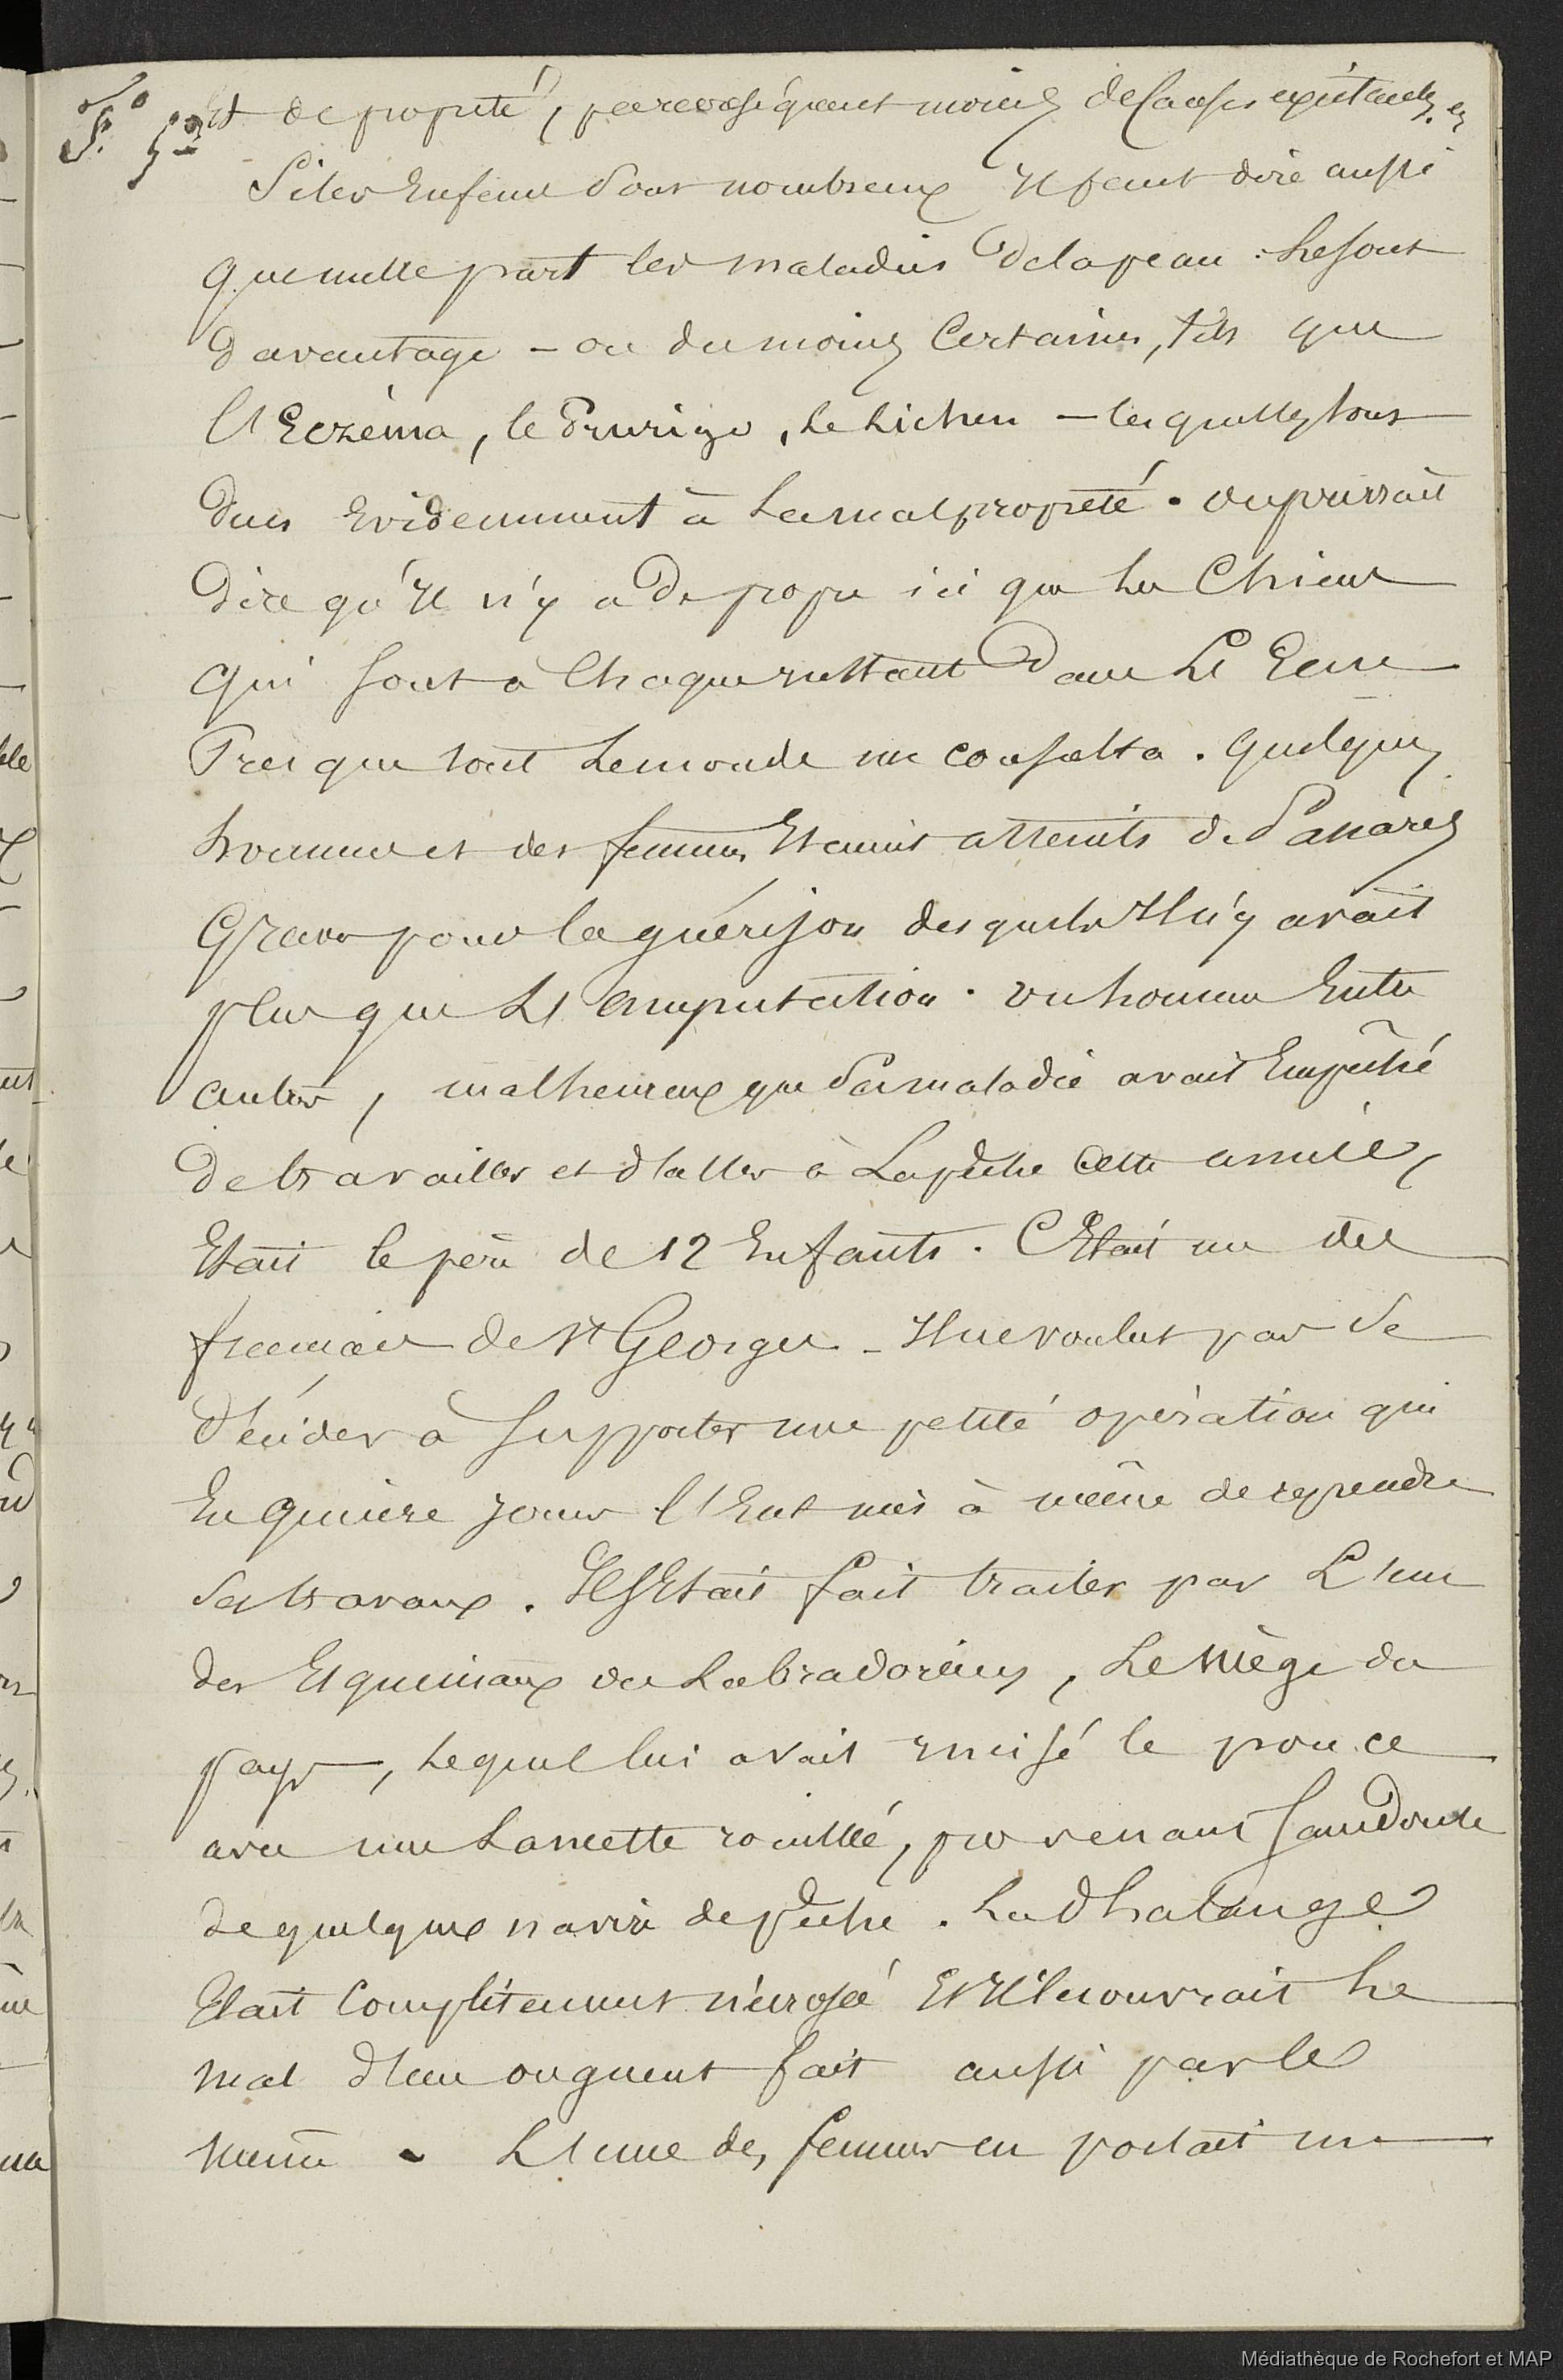 F.° 5°
Et de propreté, par conséquent moins de causes existantes.
Si les Enfants sont nombreux Il faut dire aussi
que nulle part les maladies de la peau Le sont
davantage - ou du moins Certaines, tels que
l'Eczéma, le Prurigo, le Lichen - lesquelles sont
dues Evidemment à La malpropreté. on pourrait
Dire qu'Il n'y a De propre ici que Les Chiens
qui sont à Chaque Instant Dans L'Eau
Presque tout Le monde me consulta. quelques
hommes et des femmes Etaient atteints de Panaris
Graves pour la guérison desquels Il n'y avait
plus que L'amputation. un homme Entre
autres, malheureux que Sa maladie avait Empêché
De travailler et d'aller à La pêche Cette année,
Etait le père de 12 Enfants. C'Etait un des
français de St George - Il ne voulut pas Se
décider à Supporter une petite opération qui
En quinze jours l'Eut mis à même de reprendre
Ses travaux. Il s'Etait fait traiter par L'un
des Esquimaux ou Labradoriens, Le Miège du
pays, Lequel lui avait Incisé le pouce
avec une Lancette rouillée, provenant Sans Doute
de quelque navire de pêche. La Phalange
Etait Complètement nécrosée Et Il recouvrait Le
mal d'un onguent fait aussi par le
même - L'une des femmes en portait un
Médiathèque de Rochefort et MAP